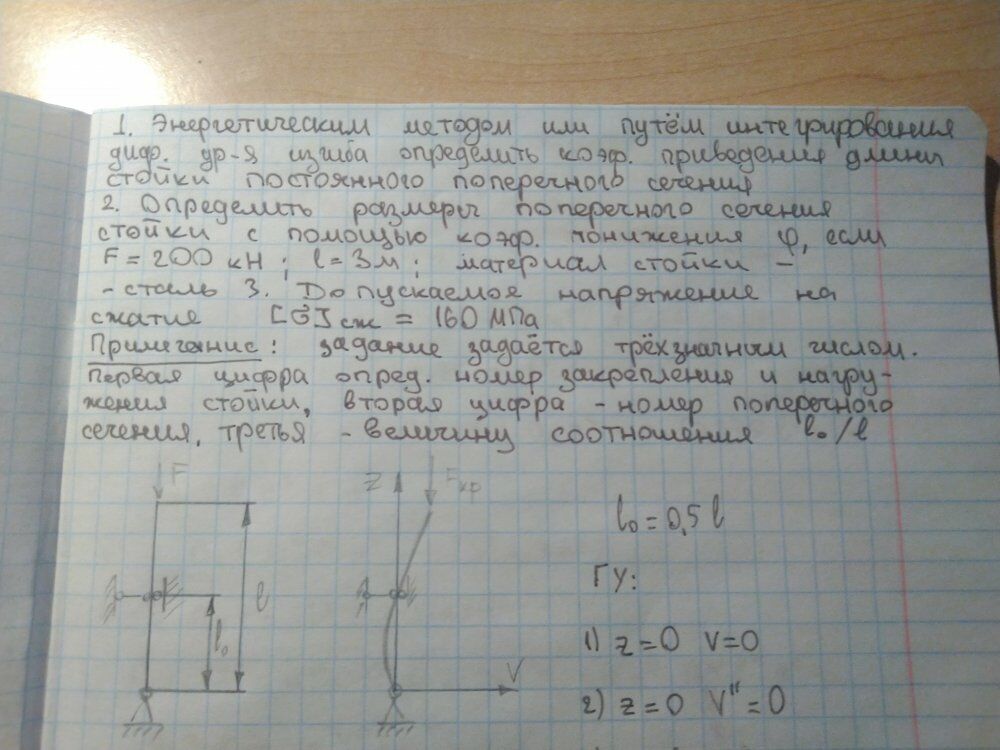 1. Энергетическим методом или путём интегрирования
диф. ур-я изгиба определить коэф. приведения длины
стойки постоянного поперечного сечения
2. Определить размеры поперечного сечения
стойки с помощью коэф. понижения φ, если
F = 200 кН; l = 3м; материал стойки -
- сталь 3. Допускаемое напряжение на
сжатие [σ]сж = 160 МПа
Примечание: задание задаётся трёхзначным числом.
Первая цифра опред. номер закрепления и нагру-
жения стойки, вторая цифра - номер поперечного
сечения, третья - величину соотношения l₀/l
F
l
l₀
z
Fкр
V
l₀ = 0,5 l
ГУ:
1) z = 0 V = 0
2) z = 0 V" = 0